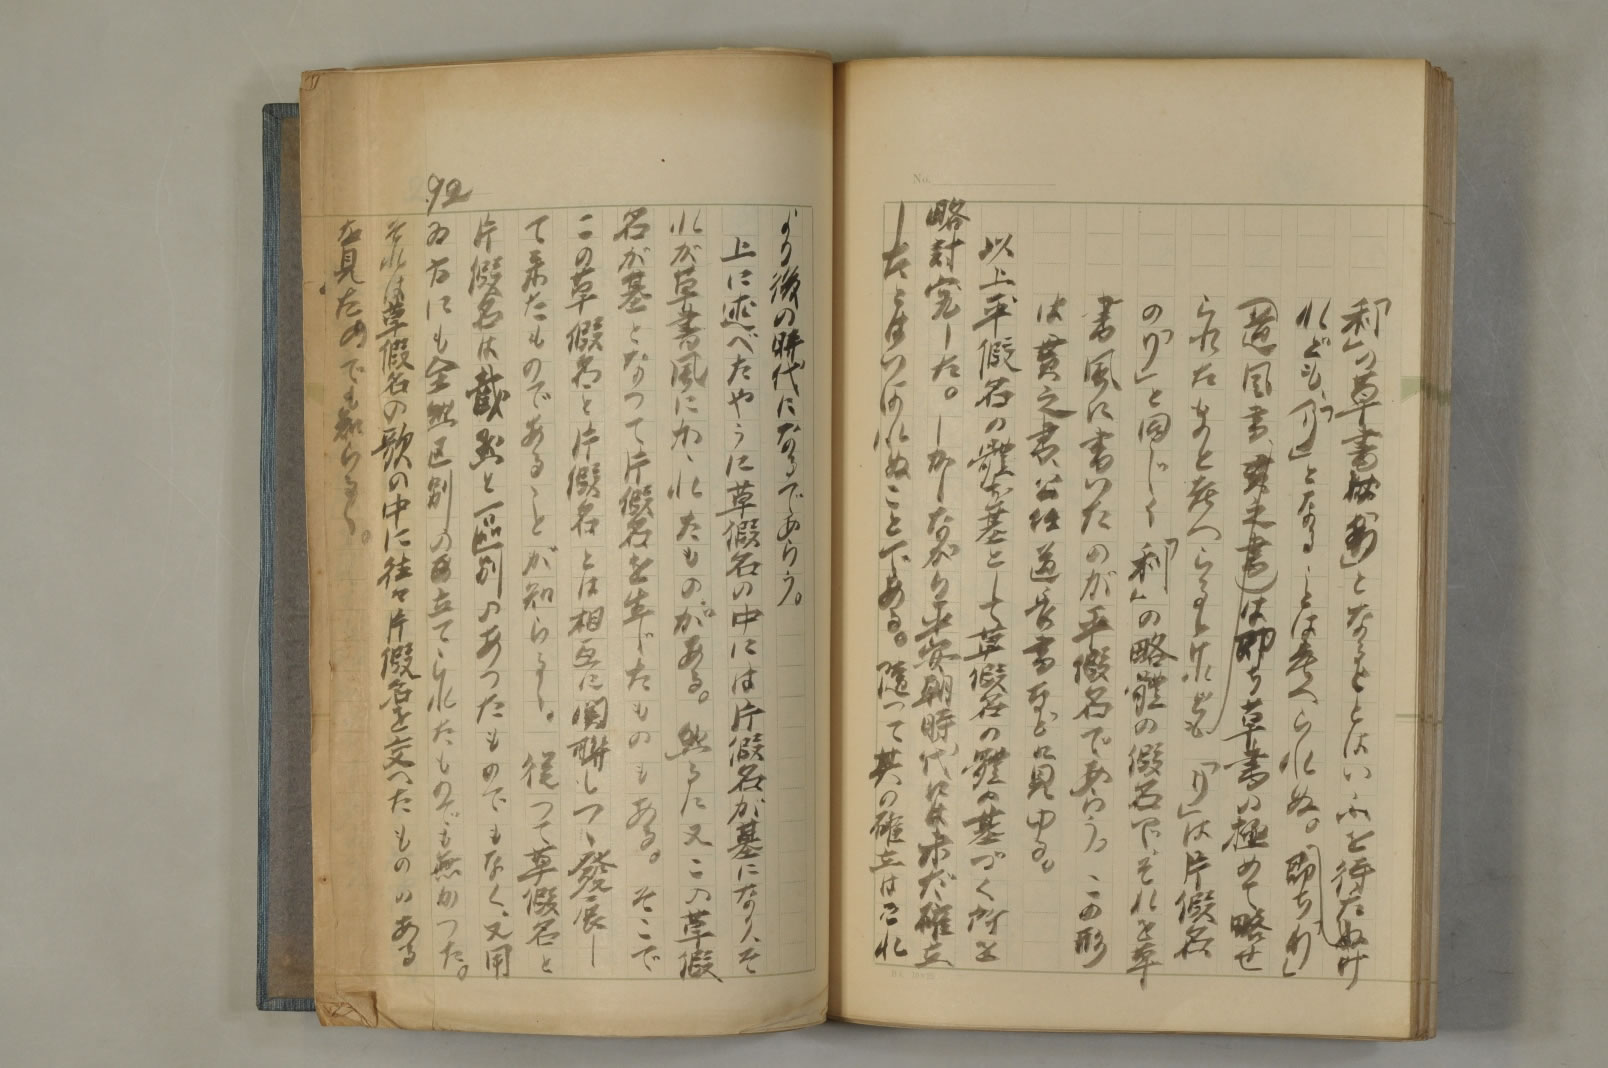 利」の草書体「お」となることはいふを待たぬけ
れども、「り」となることは考へられぬ。即ち「り」
(道風書、貫之書)は即ち草書の極めて略せ
られたるものと考へらるゝけれども「り」は片假名
の「リ」と同じく「利」の略體の假名で、それを草
書風に書いたのが平假名であらう。この形
は貫之書、公任道長書などに見ゆる。
以上平假名の體を基として草假名の體の基づく所を
略討究した。しかしながら平安朝時代には未だ確立
したとはいはれぬことである。隨つて其の確立は是れ
No.
より後の時代になるであらう。
上に述べたやうに草假名の中には片假名が基になり、そ
れが草書風にかゝれたものがある。然るに又この草假
名が基となつて片假名を生じたものもある。そこで
この草假名と片假名とは相互に関聯しつゝ發展し
て来たものであることが知らるゝ。従つて草假名と
片假名は截然と區別のあつたものでもなく、又用
ゐ方にも全然区別の立てられたものでも無かつた。
それは草假名の歌の中に往々片假名を交へたもののある
を見たのでも知らるゝ。
292